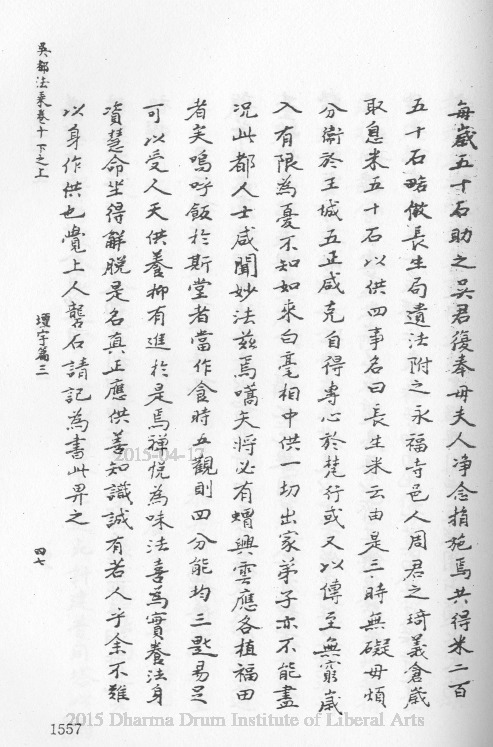 每歲五十石助之吳君復奉毋夫人净念捐施焉共得米二百
五十石略倣長生局遺法附之永福寺邑人周君之琦義倉歲
取息米五十石以供四事名曰長生米云由是三時無礙毋煩
分衛於王城五正咸克自得專心於梵行或又以傳至無窮歲
入有限為憂不知如來白毫相中供一切出家弟子亦不能盡
况此都人士咸聞妙法兹焉嚆矢將必有蝟興雲應各植福田
者矣嗚呼飯於斯堂者當作食時五觀則四分能均三匙易足
可以受人天供養抑有進於是焉禪悦為味法喜為實養法身
資慧命坐得解脱是名真正應供善知識誠有若人乎余不難
以身作供也覺上人礱石請記為書此畀之
吳都法乘卷十下之上
壇宇篇三
四七
1557
2015-04-17
2015 Dharma Drum Institute of Liberal Arts